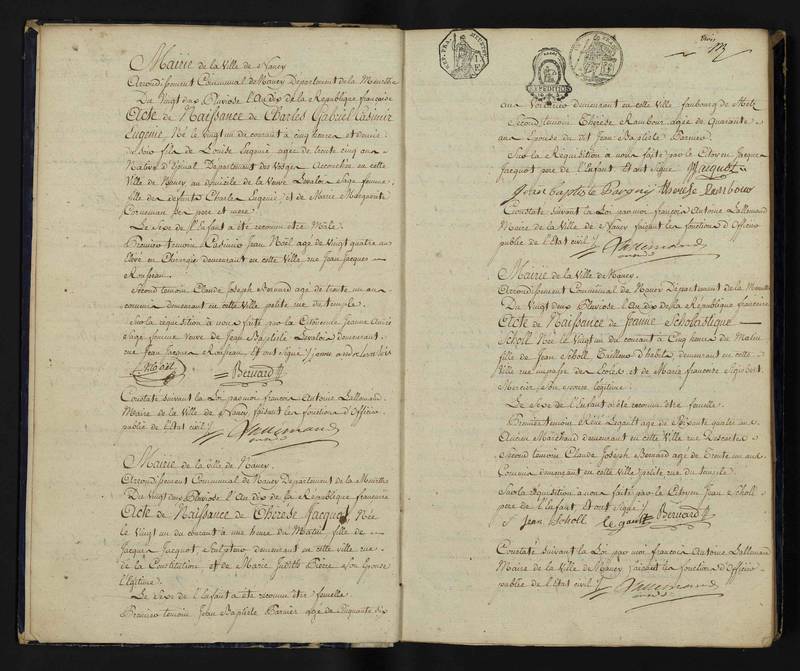 Mairie de la Ville de Nancy
Arrondissement Communal de Nancy Département de la Meurthe
Du Vingt deux Pluviose l'An dix de la République françoise
Acte de Naissance de Charles Gabriel Casimir
Eugenie, Né le vingt un du courant à cinq heures et demie
fils de Louise Eugenie agée de trente cinq ans
Native d'Epinal Departement des Vosges Accouchée en cette
Ville de Nancy au domicile de la Veuve Levalois Sage femme,
fille des défunts Charles Eugenie et de Marie Marguerite
ses pere et mere
Le Sexe de l'Enfant a été reconnu être Mâle.
Premier temoin Casimire Jean Noël agé de Vingt quatre ans
Elève en Chirurgie demeurant en cette Ville rue Jean Jacques
Rousseau.
Second temoin Claude Joseph Bernard agé de trente un ans
commis demeurant en cette Ville petite rue du temple.
Sur la réquisition à nous faite par la Citoyenne Jeanne
Sage femme Veuve de Jean Baptiste Levalois demeurant
rue Jean Jacques Rousseau Et ont signé
Noël
Bernard
Constaté suivant la Loi par moi françois Antoine Lallemand
Maire de la Ville de Nancy faisant les fonctions d'Officier
public de l'Etat civil
Lallemand
Mairie de la Ville de Nancy.
Arrondissement Communal de Nancy Département de la Meurthe
Du Vingt deux Pluviose l'An dix de la République françoise
Acte de Naissance de Thérèse Jacquot, Née
le Vingt un du courant à une heure du Matin fille de
Jacques Jacquot, Sculpteur demeurant en cette Ville rue
de la Constitution et de Marie Judith Pierre Son Epouse
légitime.
Le Sexe de l'Enfant a été reconnu être femelle.
Premier temoin Jean Baptiste Parnier agé de Cinquante dix
EXPEDITIONS
ans demeurant en cette Ville faubourg de Metz
Second temoin Thérèse Rambour agée de Quarante
ans Epouse du dit Jean Baptiste Parnier.
Sur la Requisition à nous faite par le Citoyen Jacques
Jacquot pere de l'Enfant Et ont Signé Jacquot
Jean baptiste therese Rambour
Constaté suivant la Loi par moi françois Antoine Lallemand
Maire de la Ville de Nancy faisant les fonctions d'Officier
public de l'Etat civil
Lallemand
Mairie de la Ville de Nancy.
Arrondissement Communal de Nancy Département de la Meurthe
Du Vingt deux Pluviose l'An dix de la République françoise
Acte de Naissance de Jeanne Scholastique
Scholl Née le Vingt un du courant à Cinq heures du Matin
fille de Jean Scholl Tailleur d'habits, demeurant en cette
Ville rue impasse des Ecoles et de Marie françoise Sigisbert
Mercier Son Epouse légitime.
Le Sexe de l'Enfant a été reconnu être femelle.
Premier temoin Réné Legault agé de Soixante quatre ans
Ancien Maréchaud demeurant en cette Ville rue
Second temoin Claude Joseph Bernard agé de Trente un ans
Commis demeurant en cette Ville petite rue du temple.
Sur la Réquisition a nous faite par le Citoyen Jean Scholl
pere de l'Enfant Et ont Signé
Jean Scholl legault Bernard
Constaté suivant la Loi par moi françois Antoine Lallemand
Maire de la Ville de Nancy faisant les fonctions d'Officier
public de l'Etat civil
Lallemand